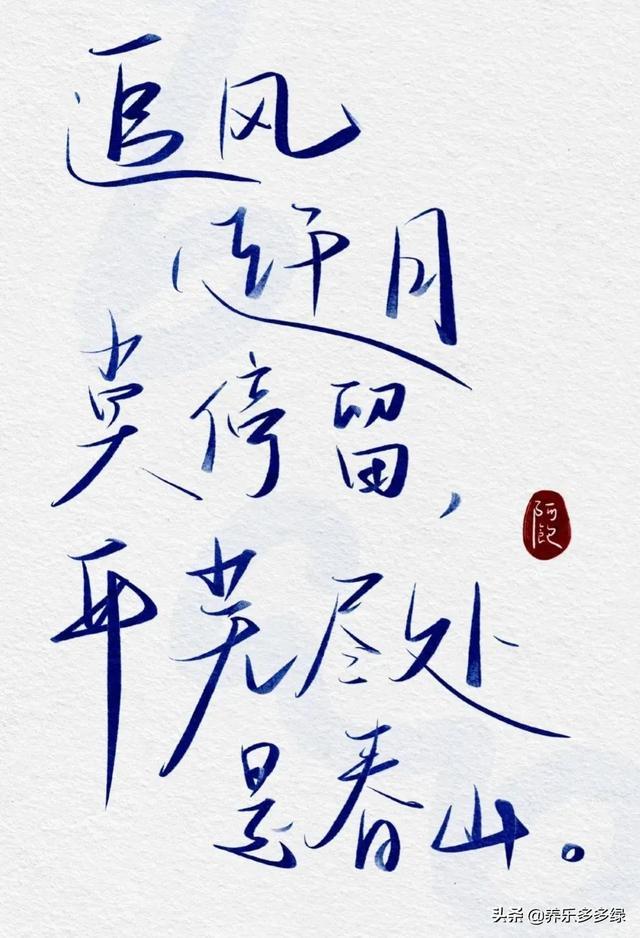 追风
赶月
莫停留，
平芜尽处
是春山。
头条 @养乐多多绿